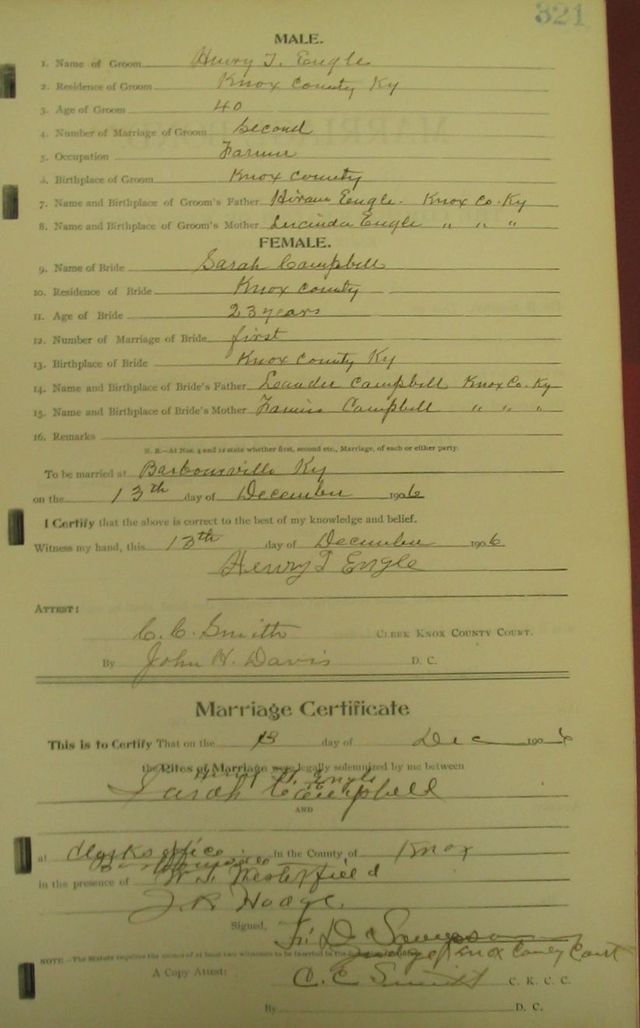 321
MALE.
1. Name of Groom Henry T. Engle
2. Residence of Groom Knox County Ky
3. Age of Groom 40
4. Number of Marriage of Groom Second
5. Occupation Farmer
6. Birthplace of Groom Knox County
7. Name and Birthplace of Groom's Father Hiram Engle. Knox Co. Ky
8. Name and Birthplace of Groom's Mother Lucinda Engle " " "
FEMALE.
9. Name of Bride Sarah Campbell
10. Residence of Bride Knox County
11. Age of Bride 23 years
12. Number of Marriage of Bride first
13. Birthplace of Bride Knox County Ky
14. Name and Birthplace of Bride's Father Leander Campbell Knox Co. Ky
15. Name and Birthplace of Bride's Mother Campbell " " "
16. Remarks
N. B.—At Nos. 4 and 12 state whether first, second etc., Marriage, of each or either party.
To be married at Barbourville Ky
on the 13th day of December 1906
I Certify that the above is correct to the best of my knowledge and belief.
Witness my hand, this 13th day of December 1906
Henry T Engle
ATTEST:
C. C. Smith CLERK KNOX COUNTY COURT.
By John H. Davis D. C.
Marriage Certificate
This is to Certify That on the 13 day of Dec 1906
the Rites of Marriage were legally solemnized by me between
Engle
Sarah Campbell
AND
at Clerks office in the County of Knox
in the presence of W. T. Westerfield
J. R. Hodge
Signed,
Judge of Knox County Court
NOTE—The Statute requires the names of at least two witnesses to be inserted in the
A Copy Attest: C. C. Smith C. K. C. C.
By D. C.